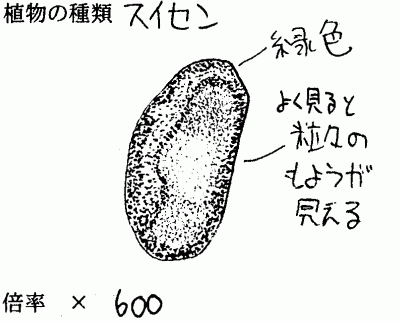 植物の種類 スイセン
緑色
よく見ると
粒々の
もようが
見える
倍率 × 600